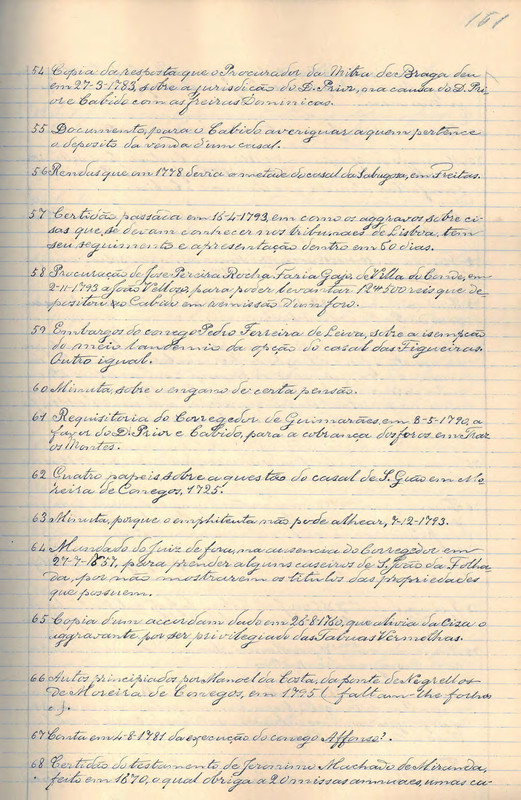 161
54 Copia da resposta que o Procurador da Mitra de Braga deu
em 27-3-1783, sobre a jurisdição do D. Prior, na causa do D. Pri-
or e Cabido com as freiras Dominicas.
55 Documento, para o Cabido averiguar a quem pertence
o deposito da venda d'um casal.
56 Rendas que em 1778 devia o metade do casal da Sabugosa, em Freitas.
57 Certidão, passada em 16-4-1793, em como os aggravos sobre ci-
sas que, se devam conhecer nos tribunaes de Lisboa, tem
seu seguimento e apresentação dentro em 60 dias.
58 Procuração de José Pereira Rocha Faria Gajo, de Villa do Conde, em
2-11-1793 a João Velloso, para poder levantar 124500 reis que de-
positou o Cabido em remissão d'um foro.
59 Embargos do conego Pedro Ferreira de Leiva, sobre a isempção
do meio laudemio da opção do casal das Figueiras.
Outro igual.
60 Minuta, sobre o engano de certa pensão.
61 Requisitoria do Corregedor de Guimarães, em 8-5-1790, a
favor do D. Prior e Cabido, para a cobrança dos foros em Traz
os Montes.
62 Cuatro papeis sobre a questão do casal de S. Gião em Mo-
reira de Conegos, 1725.
63 Minuta, porque o emphiteuta não pode alhear, 7-12-1793.
64 Mandado do Juiz de fora, na ausencia do Corregedor em
27-7-1657, para prender alguns caseiros de S. João da Folha-
da, por não mostrarem os titulos das propriedades
que possuem.
65 Copia d'um accordam dado em 26-8-1760, que alivia da Ciza o
aggravante por ser privilegiado das Tabuas Vermelhas.
66 Autos principiados por Manoel da Costa, da ponte de Negrellos
de Moreira de Conegos, em 1795 (faltam-lhe folhas
e ).
67 Conta em 4-8-1781 da execução do conego Affonso?.
68 Certidão do testamento de Jeronimo Machado de Miranda,
feito em 1670, o qual obriga a 20 missas annuaes, umas ca-